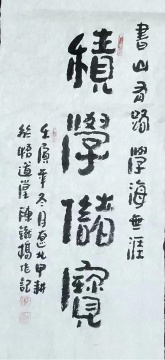 書山有路學海無涯
積學儲寶
壬寅年冬月西北甲耕
於悟道堂陳鐵楊作記